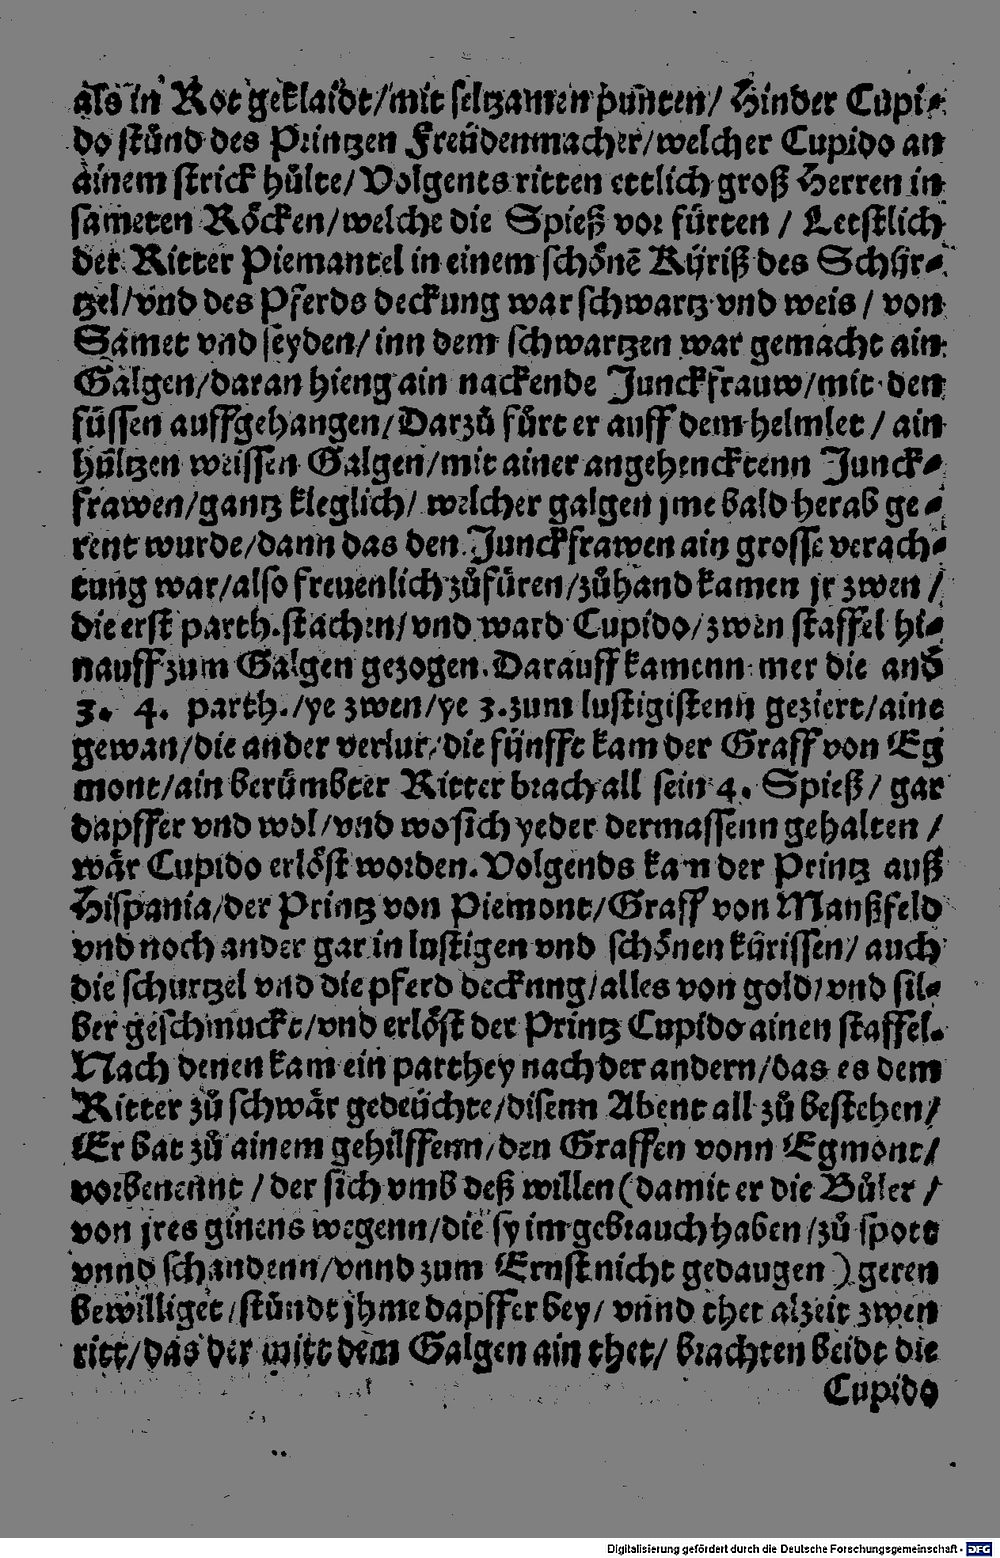 als in Rot geklaidt/mit seltzamen puncten/ Hinder Cupi⸗
do stůnd des Printzen Freüdenmacher/welcher Cupido an
ainem strick hůlte/ Volgents ritten ettlich groß Herren in
sameten Röcken/welche die Spieß vor fürten / Letstlich
der Ritter Piemantel in einem schönē Kyriß des Schür⸗
tzel/vnd des Pferds deckung war schwartz vnd weis / von
Samet vnd seyden/ inn dem schwartzen war gemacht ain
Galgen/daran hieng ain nackende Junckfrauw/mit den
füssen auffgehangen/Darzů fürt er auff dem helmlet / ain
hültzen weissen Galgen/mit ainer angehencktenn Junck⸗
frawen/gantz kleglich/ welcher galgen jme bald herab ge⸗
rent wurde/dann das den Junckfrawen ain grosse verach⸗
tung war/also freuenlich zůfüren/zůhand kamen jr zwen /
die erst parth. stachen/ vnd ward Cupido/zwen staffel hi⸗
nauff zum Galgen gezogen. Darauff kamenn mer die and
3. 4. parth./ye zwen/ye 3. zum lustigistenn geziert/aine
gewan/die ander verlur/die fünfft kam der Graff von Eg
mont/ain berümbter Ritter brach all sein 4. Spieß / gar
dapffer vnd wol/vnd wo sich yeder dermassenn gehalten /
wär Cupido erlöst worden. Volgends kam der Printz auß
Hispania/der Printz von Piemont/Graff von Manßfeld
vnd noch ander gar in lustigen vnd schönen kürissen/ auch
die schurtzel vnd die pferd deckung/alles von gold/vnd sil⸗
ber geschmuckt/vnd erlöst der Printz Cupido ainen staffel.
Nach denen kam ein parthey nach der andern/das es dem
Ritter zů schwär gedeüchte/disenn Abent all zů bestehen/
Er bat zů ainem gehilffenn/den Graffen vonn Egmont/
vorbenennt / der sich vmb deß willen (damit er die Bůler /
von jres ginens wegenn/die sy im gebrauch haben/zů spott
vnnd schandenn/vnnd zum Ernst nicht gedaugen ) geren
bewilliget/stůndt jhme dapffer bey/ vnnd thet alzeit zwen
ritt/das der mitt dem Galgen ain thet/ brachten beidt die
Cupido
Digitalisierung gefördert durch die Deutsche Forschungsgemeinschaft - DFG